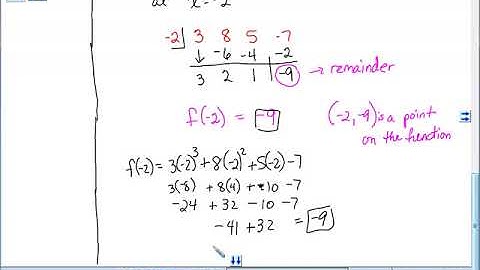 at x=-2
-2| 3 8 5 -7
↓ -6 -4 -2
3 2 1 -9 → remainder
f(-2) = -9 (-2,-9) is a point
on the function
f(-2)= 3(-2)³+8(-2)²+5(-2)-7
3(-8) +8(4) +-10 -7
-24 +32 -10 -7
-41 +32 = -9